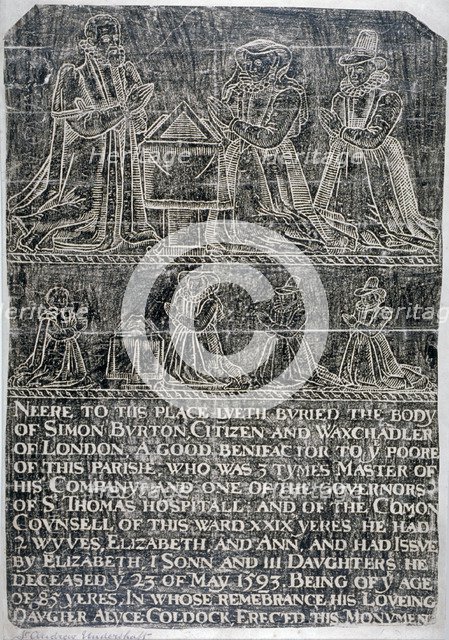 NEERE TO THS PLACE LYETH BVRIED THE BODY
OF SIMON BVRTON, CITIZEN AND WAXCHADLER
OF LONDON, A GOOD BENIFACTOR TO Y POORE
OF THIS PARISHE, WHO WAS 3 TYMES MASTER OF
HIS COMPANY; AND ONE OF THE GOVERNORS
OF St THOMAS HOSPITALL; AND OF THE COMON
COVNSELL OF THIS WARD XXIX YERES. HE HAD
2 WYVES, ELIZABETH AND ANN, AND HAD ISSVE
BY ELIZABETH, I SONN AND III DAVGHTERS HE
DECEASED Y 23 OF MAY 1593, BEING OF Ye AGE
OF 85 YERES, IN WHOSE REMEBRANCE HIS LOVEING
DAVGTER ALYCE COLDOCK, ERECTED THIS MONVMENT
St Andrew Undershaft
Heritage
Heritage
Heritage
Heritage
Heritage
Heritage
Heritage